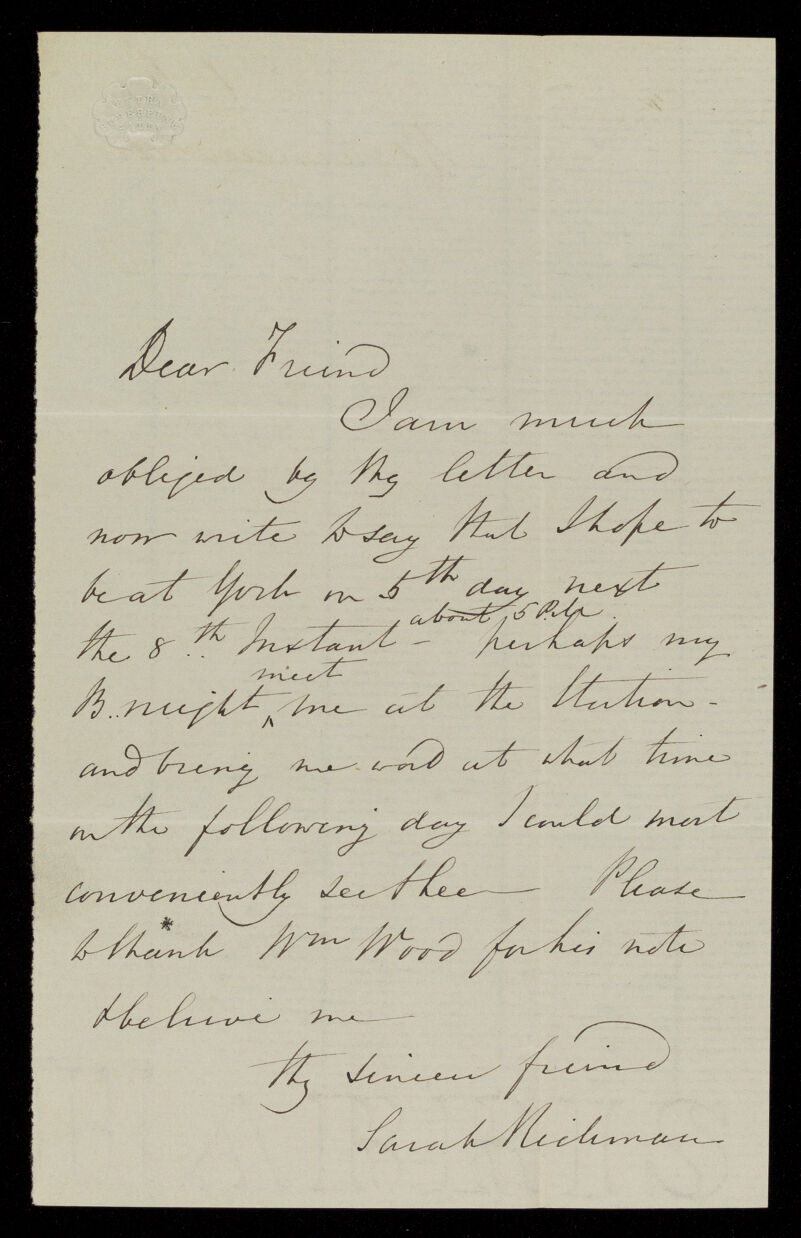 Dear Friend
I am much
obliged by thy letter and
now write to say that I hope to
be at York on 5th day next
the 8th Instant – about 5 P.M. perhaps my
B. might meet me at the Station –
and bring me word at what time
on the following day I could most
conveniently see thee – Please
to thank Wm Wood for his note
& believe me
thy sincere friend
Sarah Richman